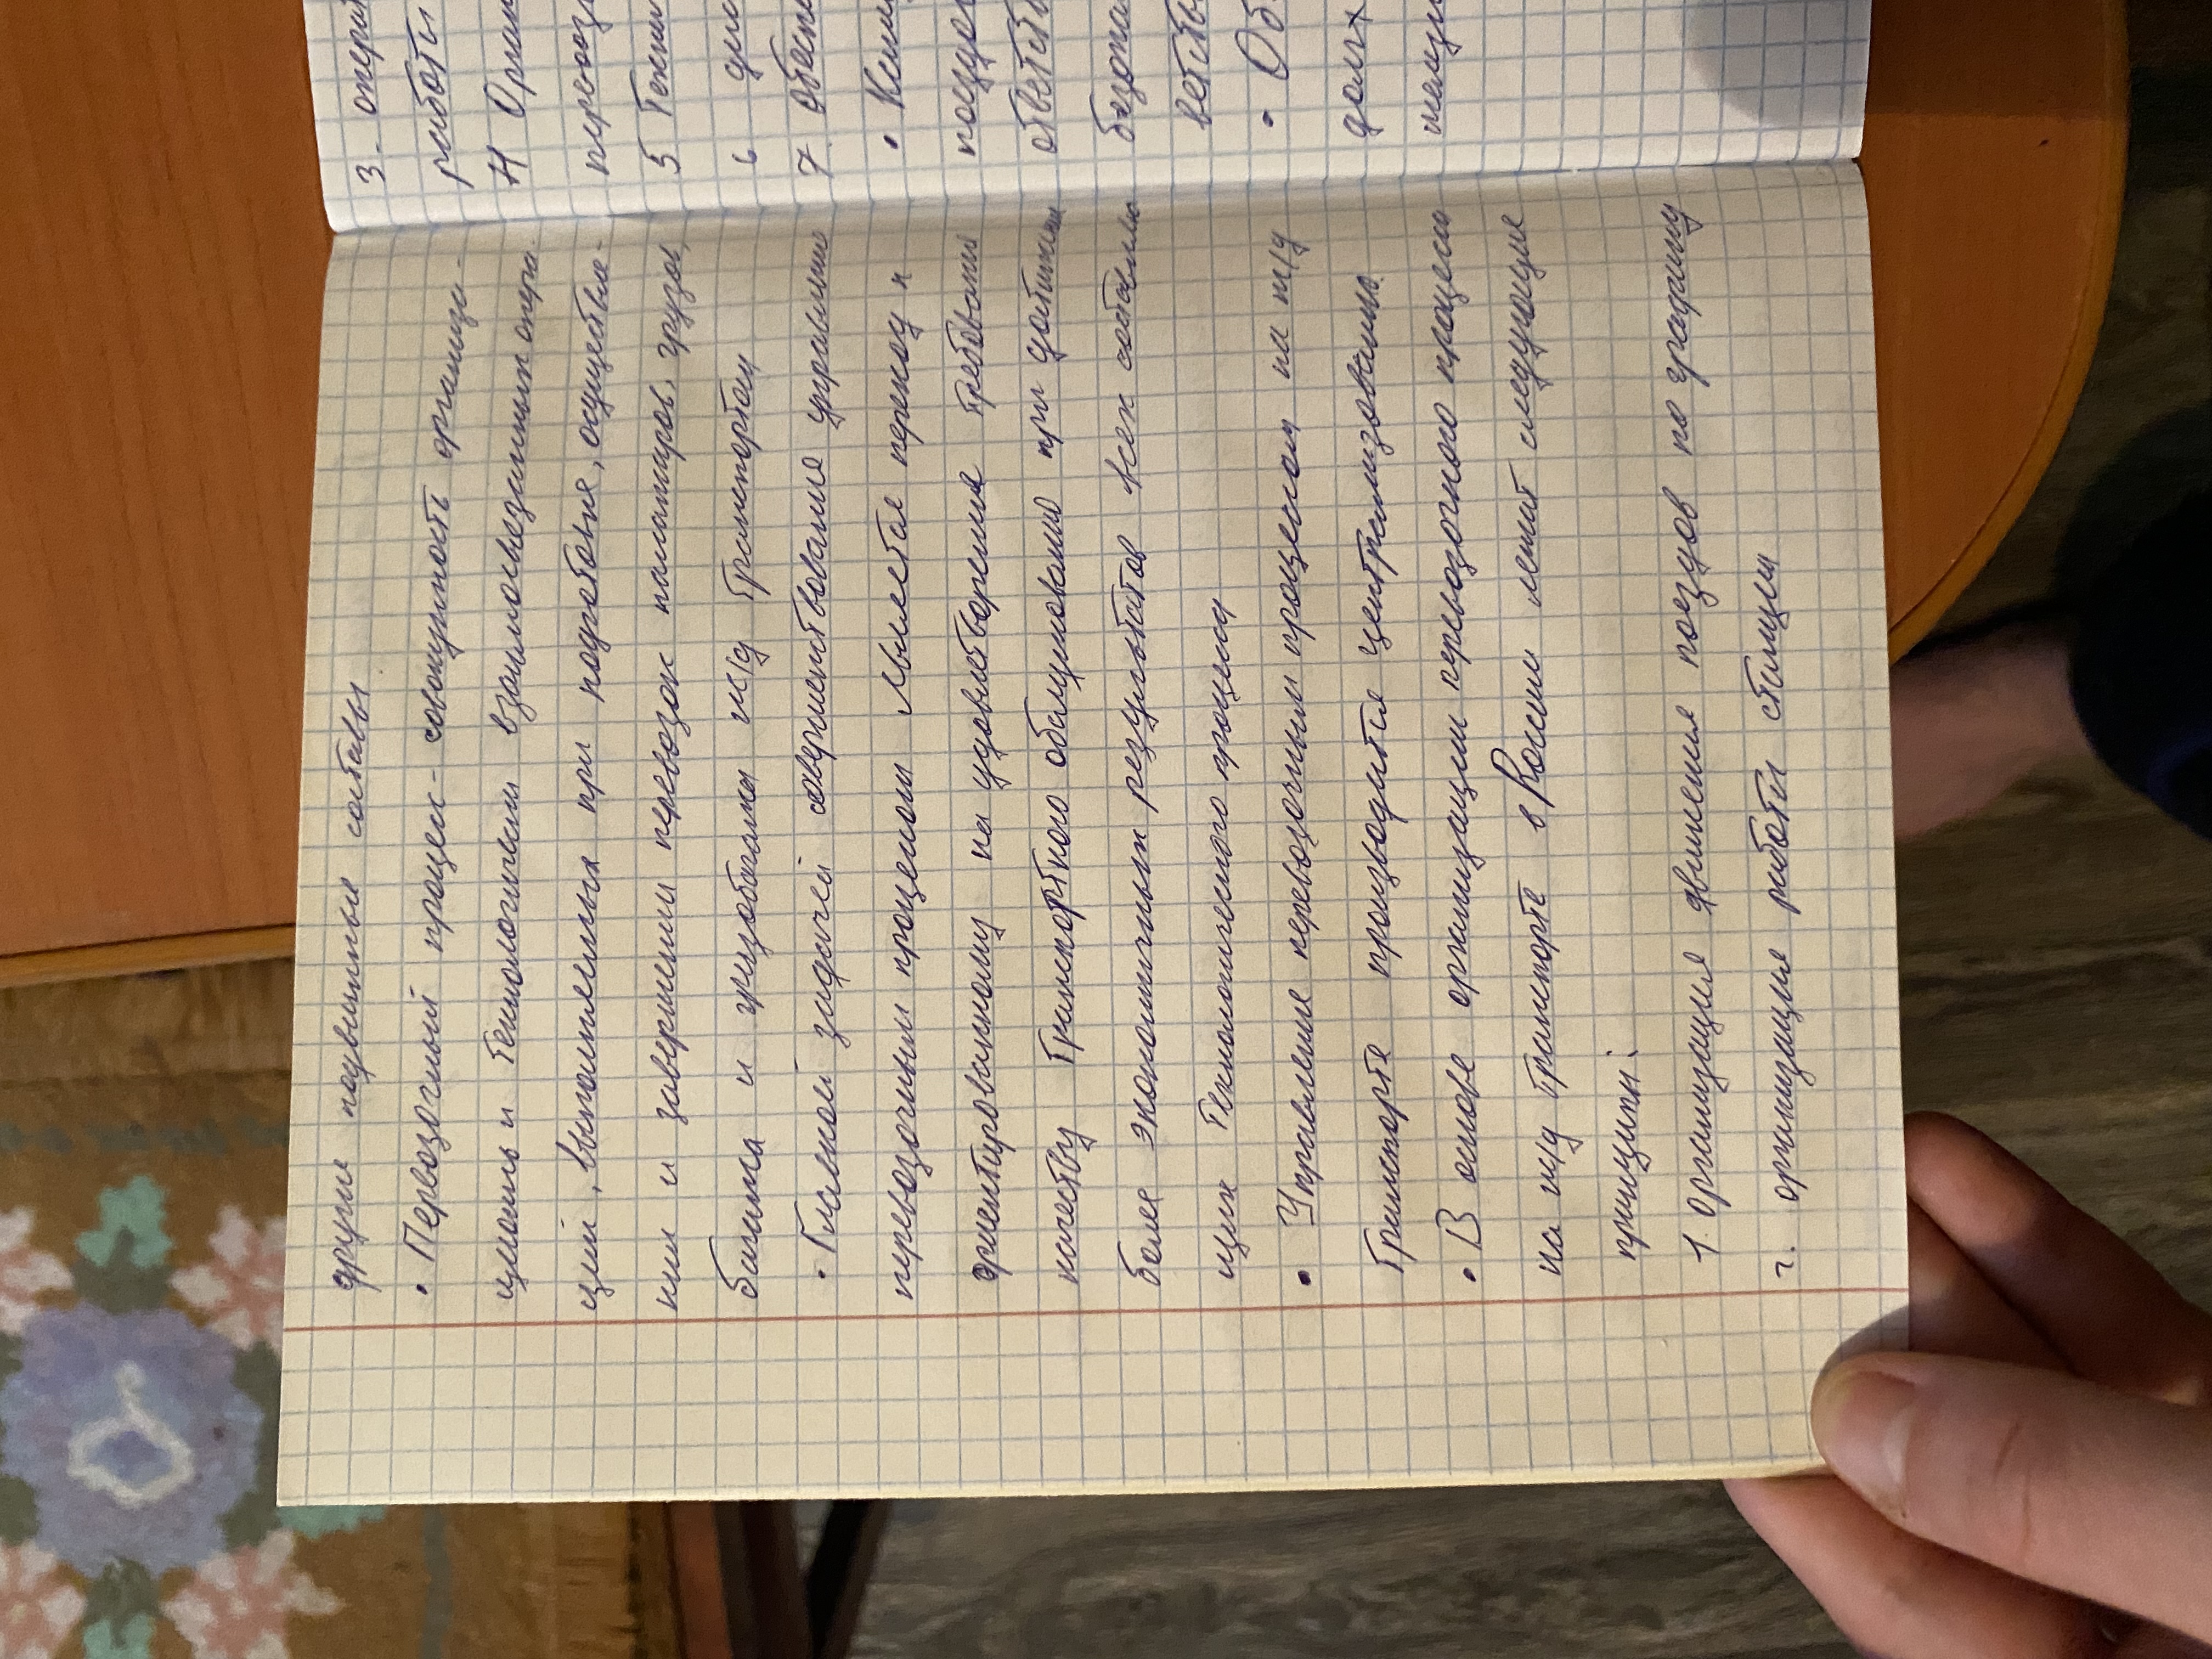 другие подвижные составы.
• Перевозочный процесс - совокупность организа-
ционно и технологически взаимосвязанных опера-
ций, выполняемых при подготовке, осуществле-
нии и завершении перевозок пассажиров, грузов,
багажа и грузобагажа ж/д транспортом
• Главной задачей совершенствование управления
перевозочным процессом является переход к
ориентированному на удовлетворение требований
качеству транспортного обслуживания при достижении
более экономичных результатов всех составляю
щих технологического процесса
• Управление перевозочным процессом на ж/д
транспорте производится централизованно.
• В основе организации перевозочного процесса
на ж/д транспорте в России лежат следующие
принципы:
1. Организация движения поездов по графику
2. организация работы станции
3- операт
работы
4 Орган
перевоз
5 Техни
6
7. Обеспе
•
поездо
ответств
безопа
ветств
• Об
долж